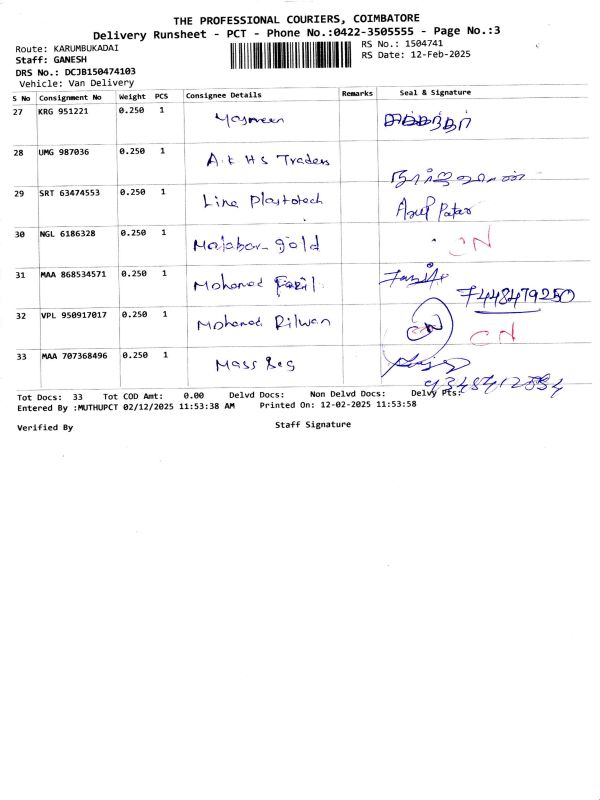 THE PROFESSIONAL COURIERS, COIMBATORE
Delivery Runsheet - PCT - Phone No.:0422-3505555 - Page No.:3
Route: KARUMBUKADAI
RS No.: 1504741
Staff: GANESH
RS Date: 12-Feb-2025
DRS No.: DCJB150474103
Vehicle: Van Delivery
S No Consignment No Weight PCS Consignee Details Remarks Seal & Signature
27 KRG 951221 0.250 1 Yasmeen
28 UMG 987036 0.250 1 A.K HS Traders
29 SRT 63474553 0.250 1 Line Plastotech
30 NGL 6186328 0.250 1 Malabar gold CN
31 MAA 868534571 0.250 1 Mohamed Fazil
7448479250
32 VPL 950917017 0.250 1 Mohamed Rilwan CN CN
33 MAA 707368496 0.250 1 Mass
Tot Docs: 33 Tot COD Amt: 0.00 Delvd Docs: Non Delvd Docs: Delvy Pts:
Entered By :MUTHUPCT 02/12/2025 11:53:38 AM Printed On: 12-02-2025 11:53:58
Verified By Staff Signature